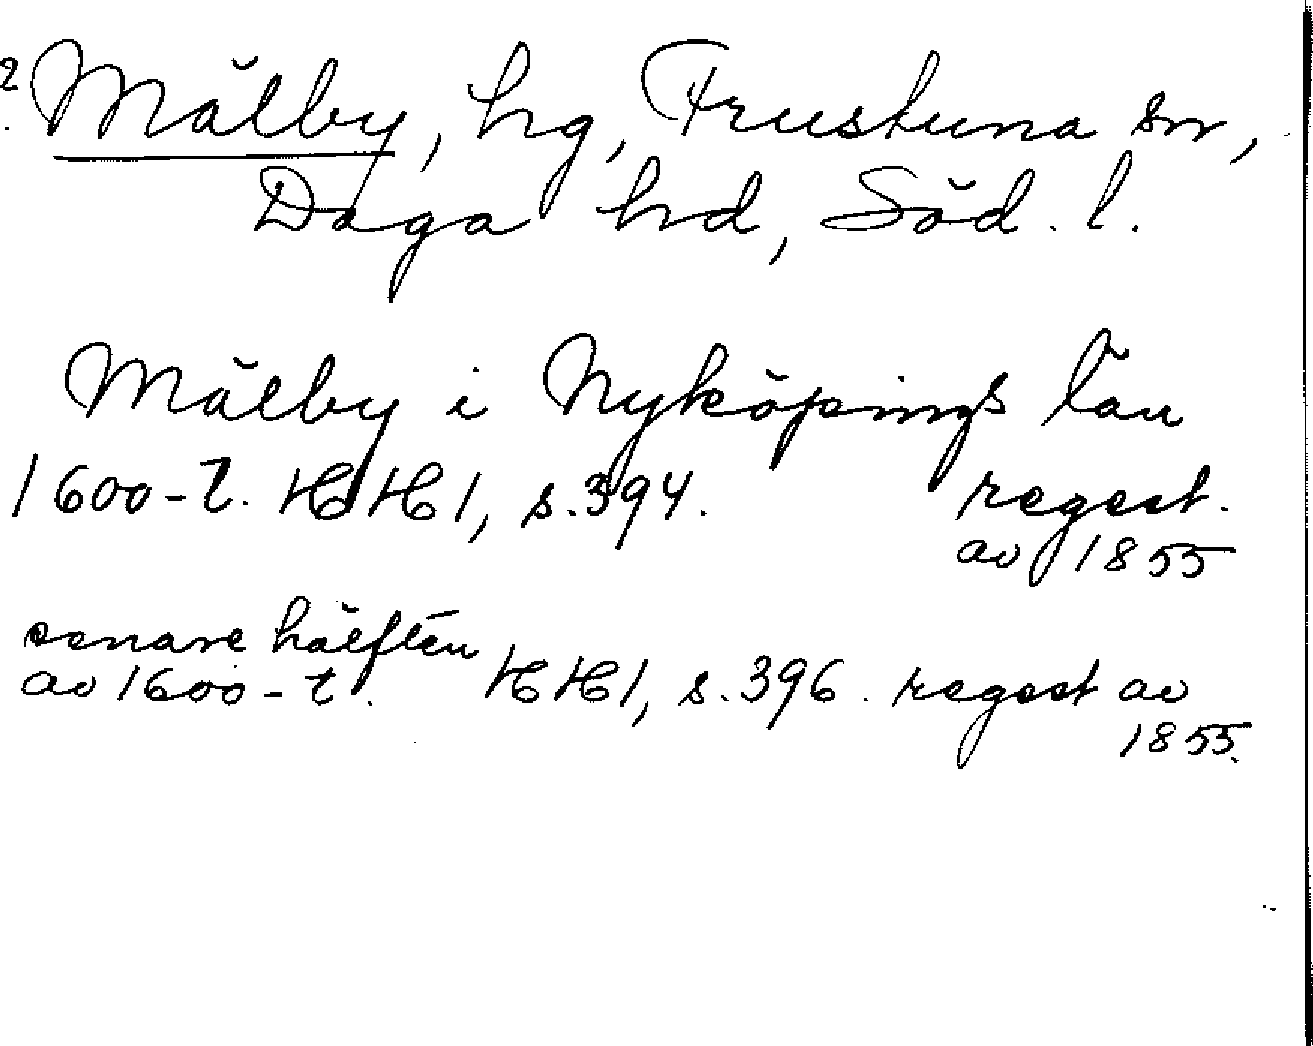 2. Mälby, hg, Frustuna sn,
Daga hd, Söd. l.
Mälby i Nyköpings län
1600-t. HH1, s.394. regest.
av 1855
senare hälften
av 1600-t. HH1, s.396. regest av
1855.